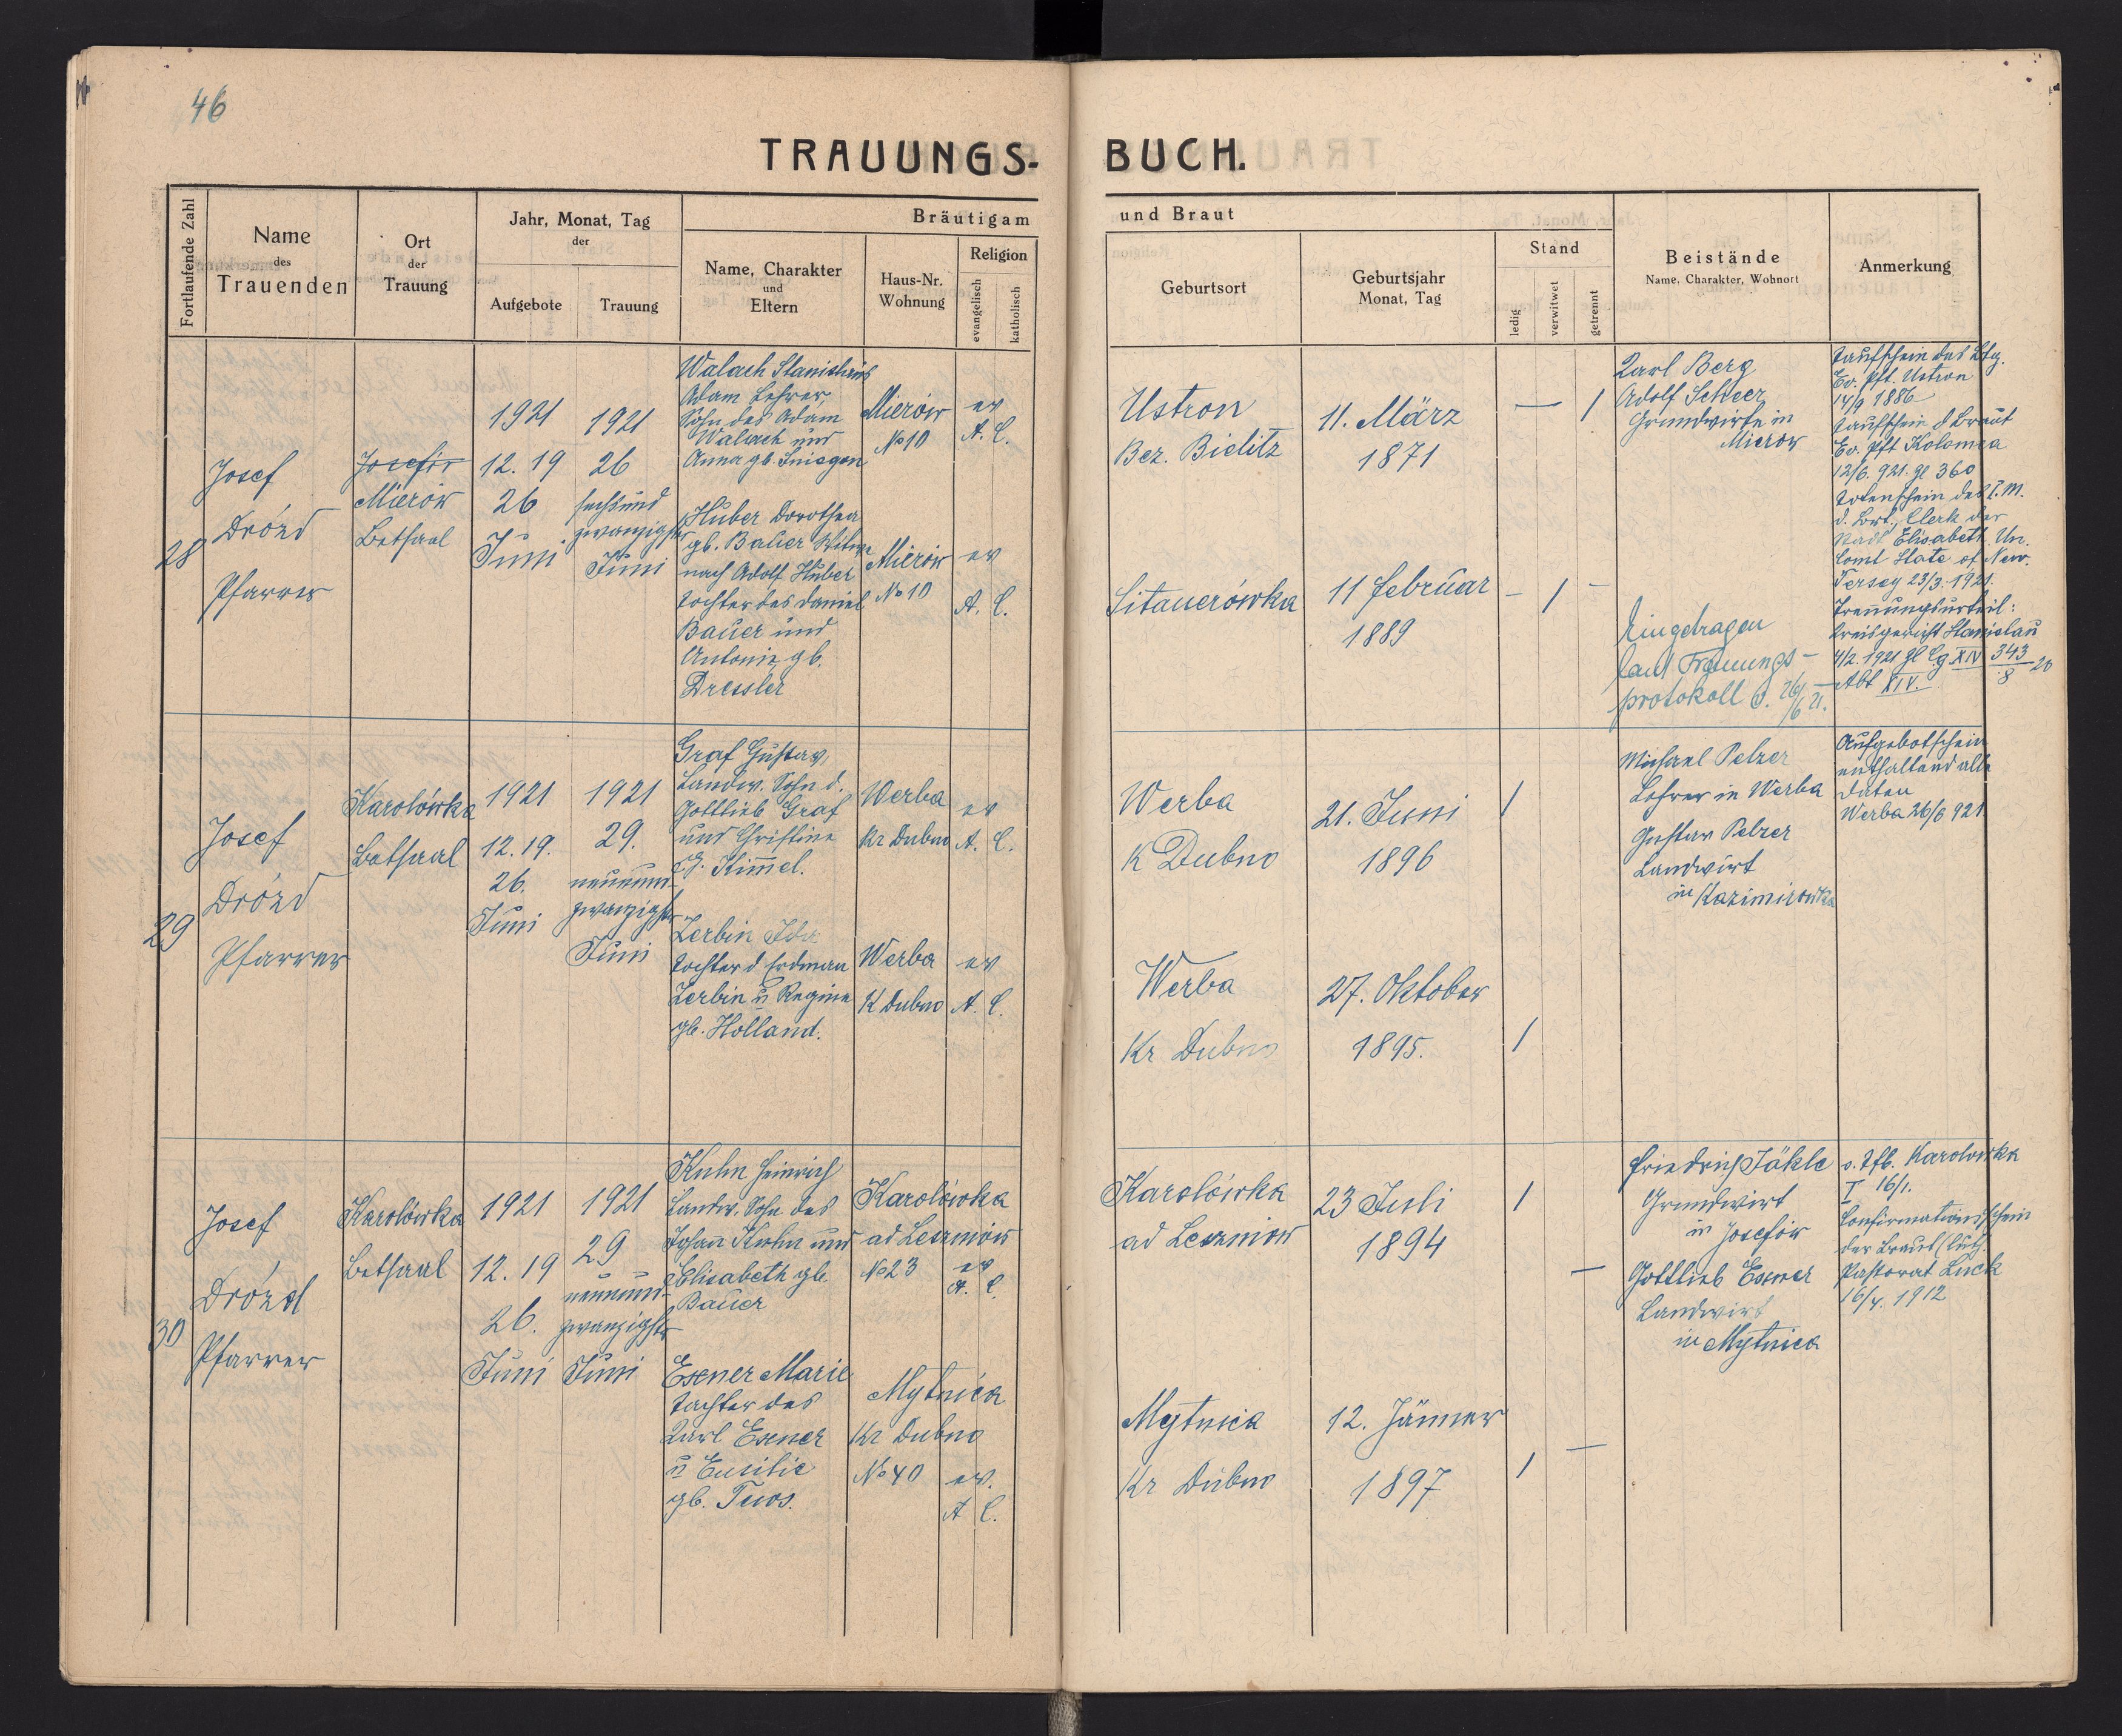 46
TRAUUNGS-
BUCH.
Fortlaufende Zahl
Name
des
Trauenden
Ort
der
Trauung
Jahr, Monat, Tag
der
Aufgebote
Trauung
Bräutigam
Name, Charakter
und
Eltern
Haus-Nr.
Wohnung
Religion
evangelisch
katholisch
und Braut
Geburtsort
Geburtsjahr
Monat, Tag
Stand
ledig
verwitwet
getrennt
Beistände
Name, Charakter, Wohnort
Anmerkung
28
Josef
Drózd
Pfarrer
Josefów
Mierów
Betsaal
1921
12. 19
26
Juni
1921
26
sechsund
zwanzigster
Juni
Walach Stanislaus
Adam Lehrer,
Sohn des Adam
Walach und
Anna gb. Sniegon
Mierów
No 10
ev
A. C.
Huber Dorothea
gb. Bauer Witwe
nach Adolf Huber
Tochter des Daniel
Bauer und
Antonie gb.
Dressler
Mierów
No 10
ev
A. C.
Ustron
Bez. Bielitz
11. März
1871
— 1
Sitauerówka
11 Februar
1889
– 1 –
Karl Berg
Adolf Scheer
Grundwirte in
Mierow
Eingetragen
laut Trauungs-
protokoll v. 26/6 21.
Taufschein des Btg.
Ev. Pft. Ustron
14/9 1886
Taufschein d Braut
Ev. Pft Kolomea
12/6. 921. Zl 360
Totenschein des I. M.
d. Brt., Clerk der
Stadt Elisabeth, Un.
Comt State of New.
Jersey 23/3. 1921.
Trennungsurteil:
Kreisgericht Stanislau
4/2. 1921 Zl Cg XIV 343/8 20
Abt XIV.
29
Josef
Drózd
Pfarrer
Karolówka
Betsaal
1921
12. 19.
26.
Juni
1921
29.
neunund-
zwanzigster
Juni
Graf Gustav,
Landw. Sohn d.
Gottlieb Graf
und Christine
g. Kimmel.
Werba
Kr Dubno
ev
A. C.
Zerbin Ida
Tochter d. Erdman
Zerbin u Regine
gb. Holland.
Werba
K Dubno
ev
A. C.
Werba
K Dubno
21. Juni
1896
1
Werba
Kr Dubno
27. Oktober
1895.
1
Michael Pelzer
Lehrer in Werba
Gustav Pelzer
Landwirt
in Kazimirowka
Aufgebotschein
enthaltend alle
Daten
Werba 26/6 921
30
Josef
Drózd
Pfarrer
Karolówka
Betsaal
1921
12. 19
26.
Juni
1921
29
neunund-
zwanzigster
Juni
Kuhn Heinrich
Landw. Sohn des
Johann Kuhn und
Elisabeth gb.
Bauer
Karolówka
ad Leszniów
No 23
ev
A. C.
Exner Marie
Tochter des
Karl Exner
u Emilie
gb. Tuos.
Mytnica
Kr Dubno
No 40
ev.
A C.
Karolówka
ad Leszniow
23 Juli
1894
1
—
Mytnica
Kr Dubno
12. Jänner
1897
1 —
Friedrich Jäkle
Grundwirt
in Josefów
Gottlieb Exner
Landwirt
in Mytnica
s. Tfb. Karolowka
I 16/1.
Confirmationsschein
der Braut (luth.
Pastorat Luck
16/4. 1912